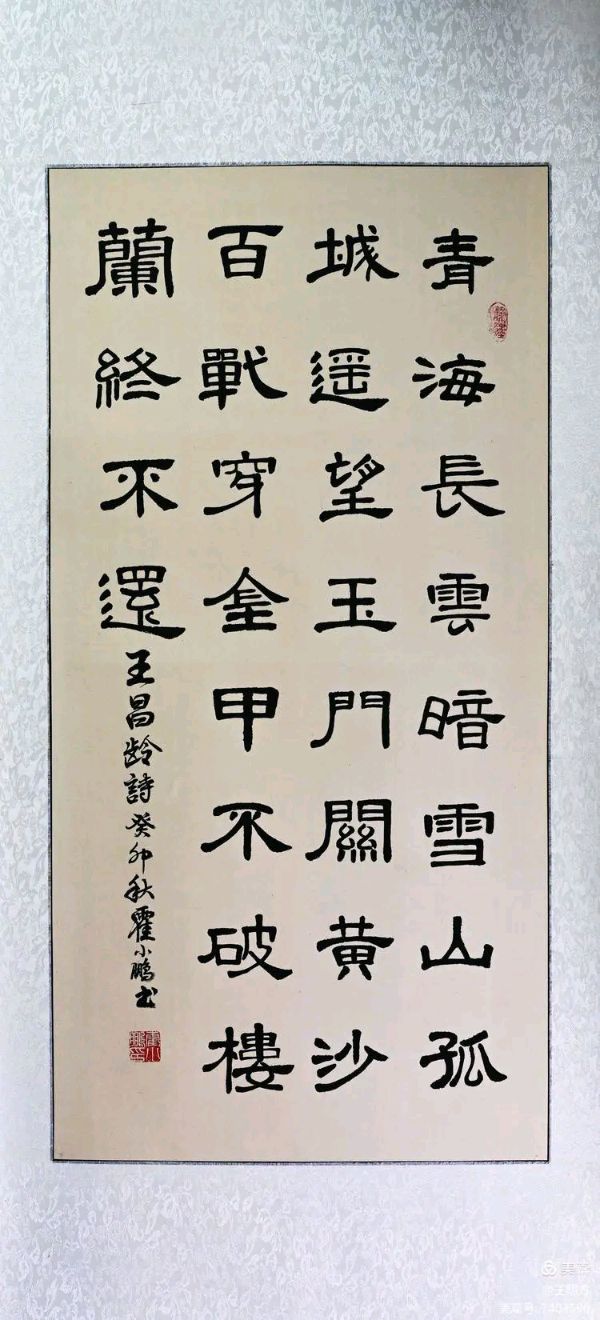 青海長雲暗雪山孤
城遥望玉門關黄沙
百戰穿金甲不破樓
蘭終不還
王昌龄詩癸卯秋霍小鵬书